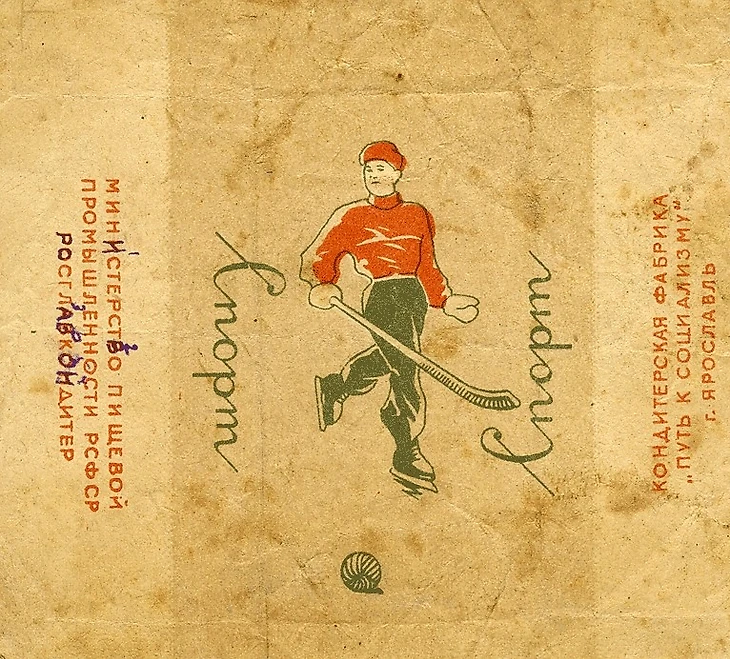 МИНИСТЕРСТВО ПИЩЕВОЙ
ПРОМЫШЛЕННОСТИ РСФСР
РОСГЛАВКОНДИТЕР
Спорт
Спорт
КОНДИТЕРСКАЯ ФАБРИКА
„ПУТЬ К СОЦИАЛИЗМУ"
г. ЯРОСЛАВЛЬ